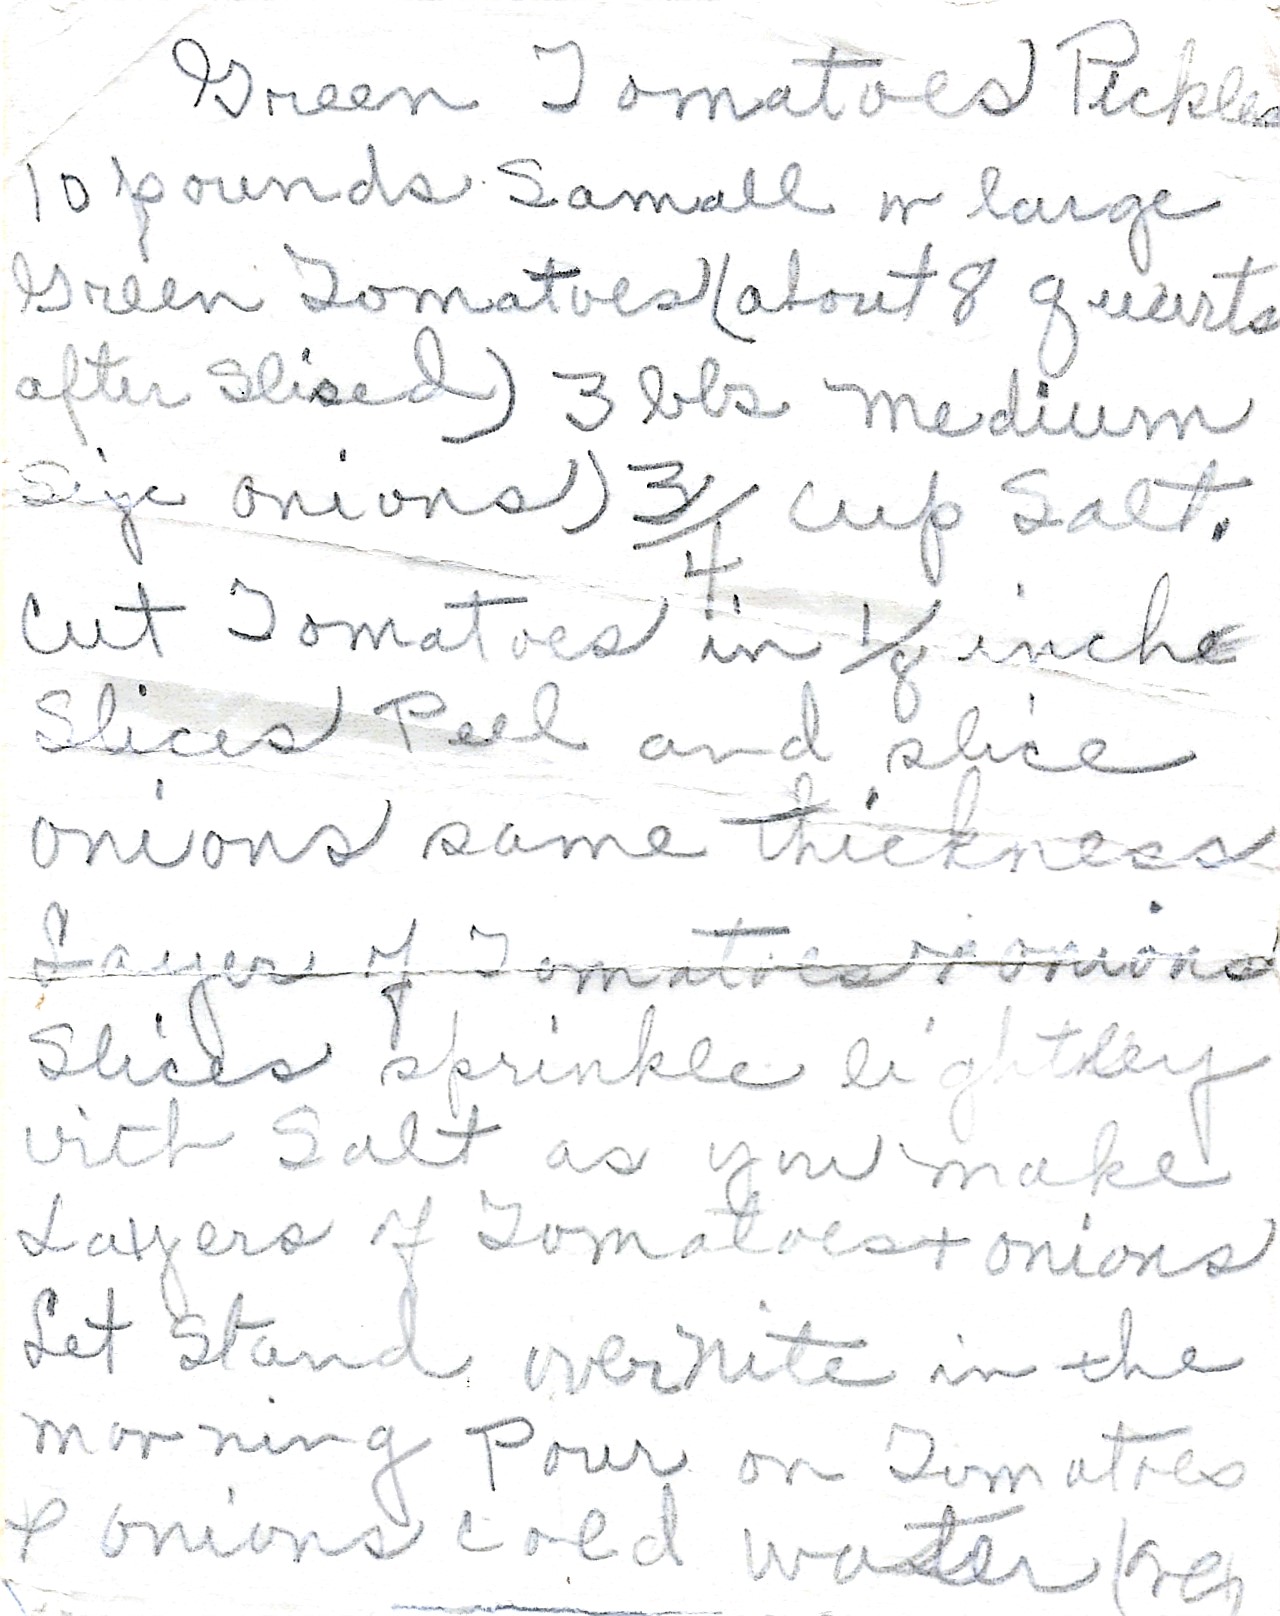 Green Tomatoes Pickles
10 pounds Samall or large
Green Tomatoes (about 8 quarts
after Slised) 3 lbs medium
Size onions) 3/4 cup Salt.
Cut Tomatoes in 1/8 inche
Slices Peel and slice
onions same thickness
Layers of Tomatoes & onions
Slices sprinkle lightley
with Salt as you make
Layers of Tomatoes + onions
Let Stand overnite in the
morning Pour on Tomatoes
& onions cold water (over